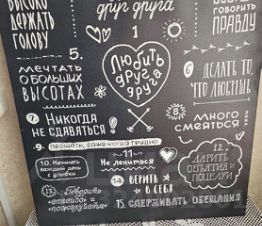 ВЫСОКО
ДЕРЖАТЬ
ГОЛОВУ
друг друга
1
ГОВОРИТЬ
ПРАВДУ
ЛЮБИТЬ
друг
друга
5.
МЕЧТАТЬ
О БОЛЬШИХ
ВЫСОТАХ
6.
ДЕЛАТЬ ТО,
ЧТО ЛЮБИМ
7. НИКОГДА
НЕ СДАВАТЬСЯ!
8
МНОГО
СМЕЯТЬСЯ
9. ПРОЩАТЬ, ДАЖЕ КОГДА ТРУДНО
10. Начинать
каждый день
с улыбки
11
Не лениться
12.
ДАРИТЬ
ОБЪЯТИЯ И
ПОЦЕЛУИ
13. Говорить
"спасибо" и
"пожалуйста"
14 ВЕРИТЬ
В СЕБЯ
15. СДЕРЖИВАТЬ ОБЕЩАНИЯ